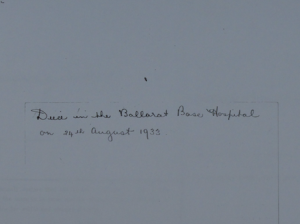 Died in the Ballarat Base Hospital
on 24th August 1933